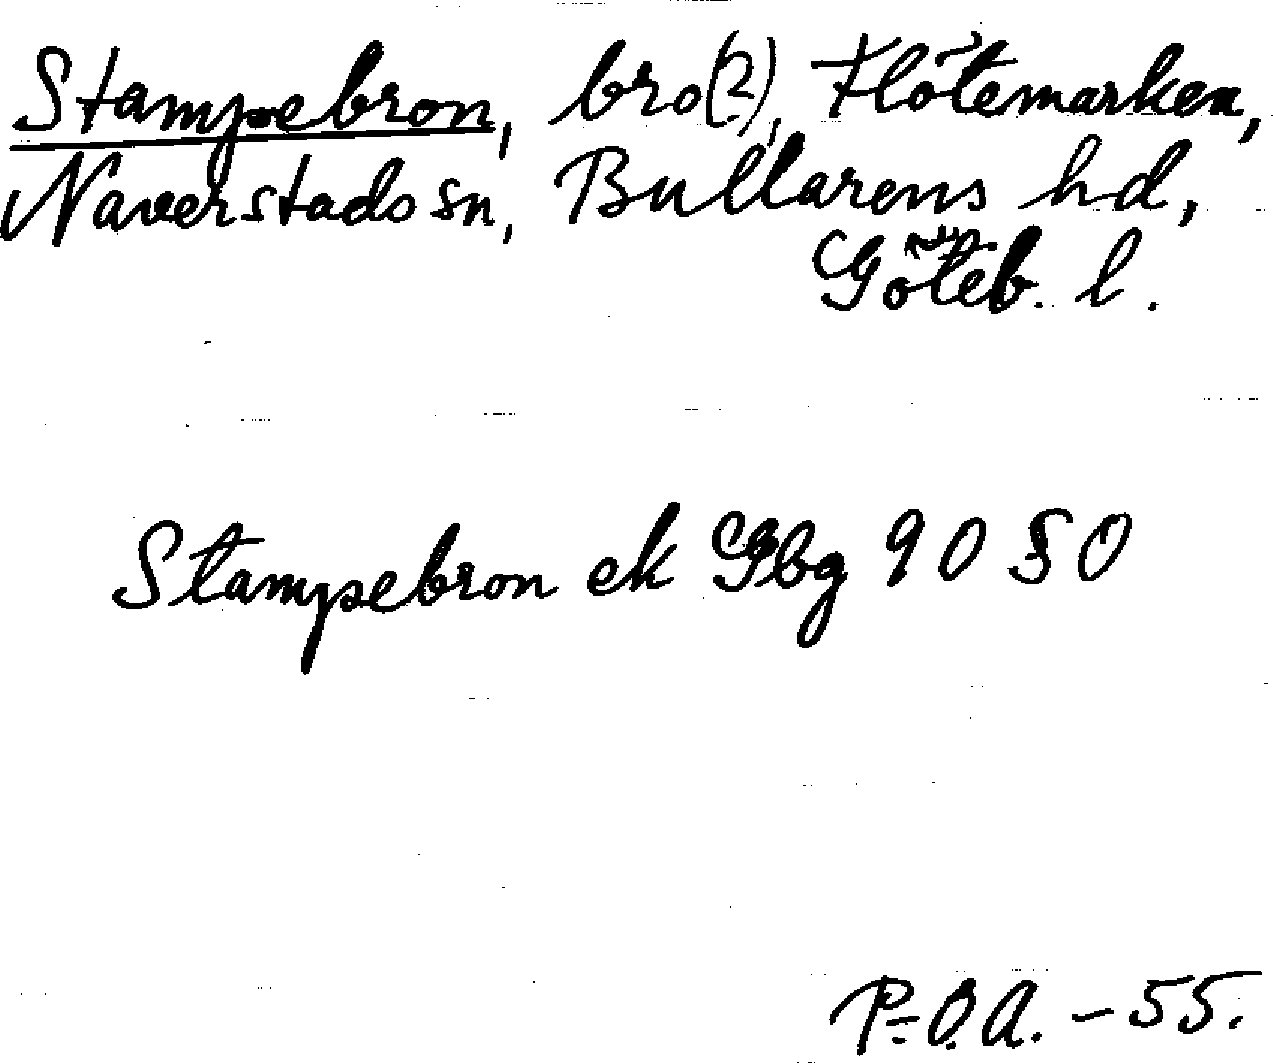 Stampebron, bro(?), Flötemarken,
Naverstads sn, Bullarens hd,
Göteb. l.
Stampebron ek Gbg 90 50
P-O.A. - 55.